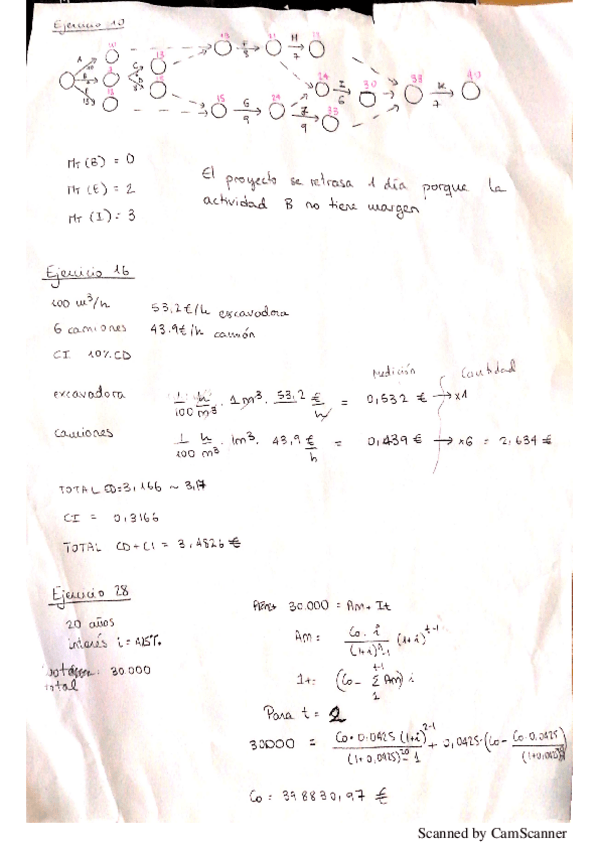 Ejercicio 10
H
7
G
9
I
6
7
9
K
7
Mt (B) = 0
Mt (E) = 2
Mt (I) = 3
El proyecto se retrasa 1 día porque la
actividad B no tiene margen
Ejercicio 16
100 m³/h 53,2 €/h excavadora
6 camiones 43.9€/h camión
CI 10% CD
Medición Cantidad
excavadora 1/100 h/m³ · 1 m³ · 53,2 €/h = 0,532 € → x1
camiones 1/100 h/m³ · 1m³ · 43,9 €/h = 0,439 € → x6 = 2,634 €
TOTAL CD = 3,166 ~ 3,17
CI = 0,3166
TOTAL CD + CI = 3,4826 €
Ejercicio 28
20 años
interés i =
30.000
total
30.000 = Am + It
Am = Co · i / (1+i)ⁿ-1 (1+i)^t-1
It = (Co - Σ Am) i
t-1
1
Para t = 2
30000 = Co · 0.0425 (1+i)^2-1 / (1+0,0425)^20 - 1 + 0,0425 · (Co - Co · 0.0425 / (1+0,0425)
Co = 398830,97 €
Scanned by CamScanner